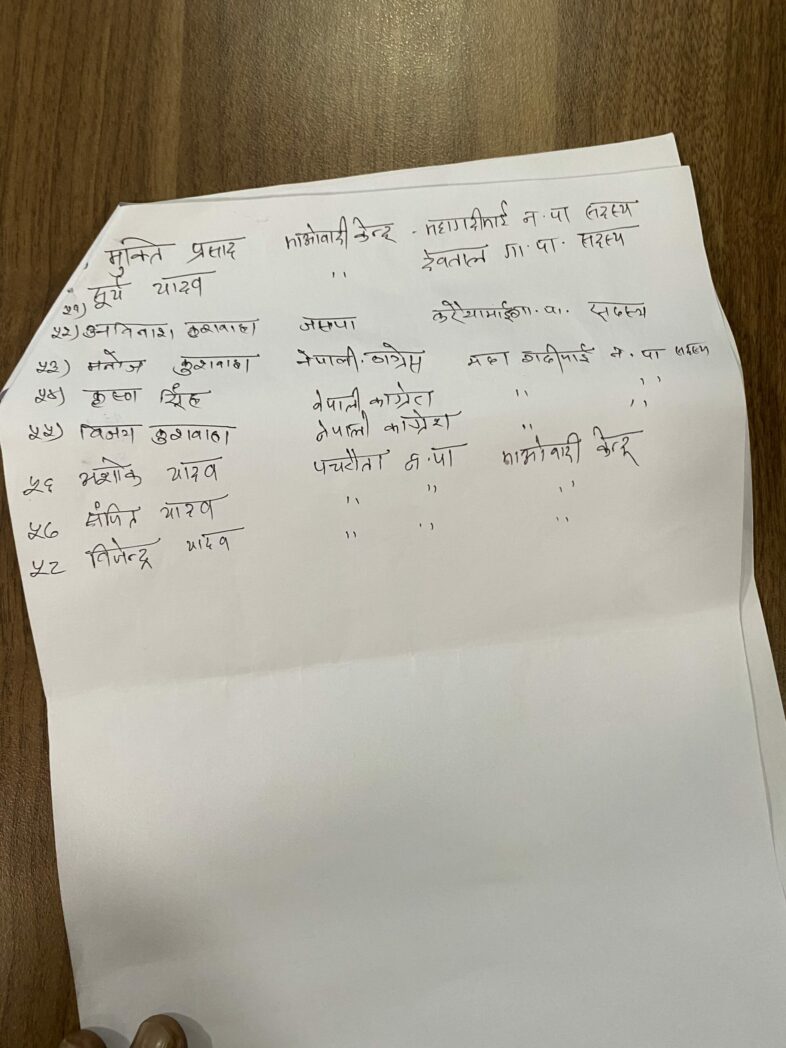 मुक्ति प्रसाद माओवादी केन्द्र - महागढीमाई न.पा सदस्य
५१) सुर्य यादव '' देवताल गा.पा. सदस्य
५२) अविनाश कुशवाहा जसपा करैयामाई गा.पा. सदस्य
५३) मनोज कुशवाहा नेपाली कांग्रेस महागढीमाई न.पा सदस्य
५४) कृष्ण सिंह नेपाली कांग्रेस '' ''
५५) विजय कुशवाहा नेपाली कांग्रेश '' ''
५६ अशोक यादव पचरौता न.पा माओवादी केन्द्र
५७ संजित यादव '' '' ''
५८ विजेन्द्र यादव '' '' ''